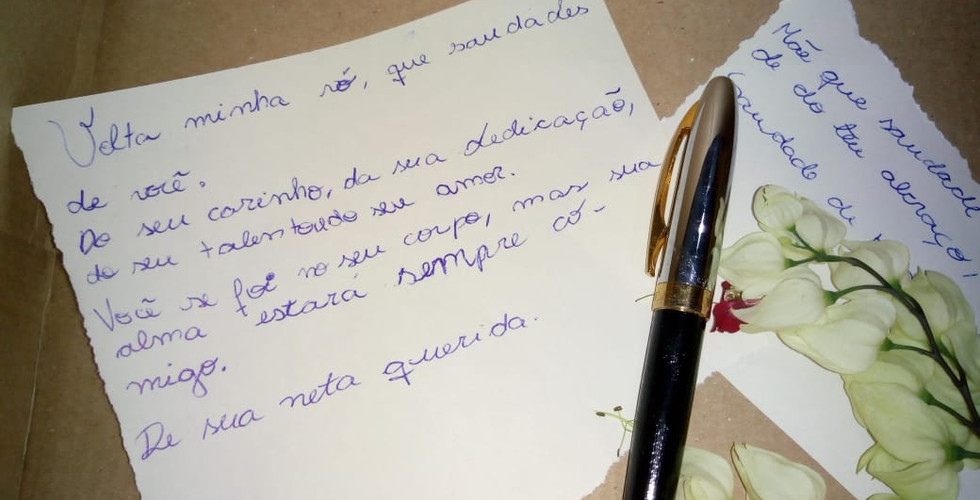 Volta minha vó, que saudades
de você.
Do seu carinho, da sua dedicação,
do seu talento do seu amor.
Você se foi no seu corpo, mas sua
alma estará sempre co-
migo.
De sua neta querida.
Mãe que saudade
de do teu abraço!
Saudade de